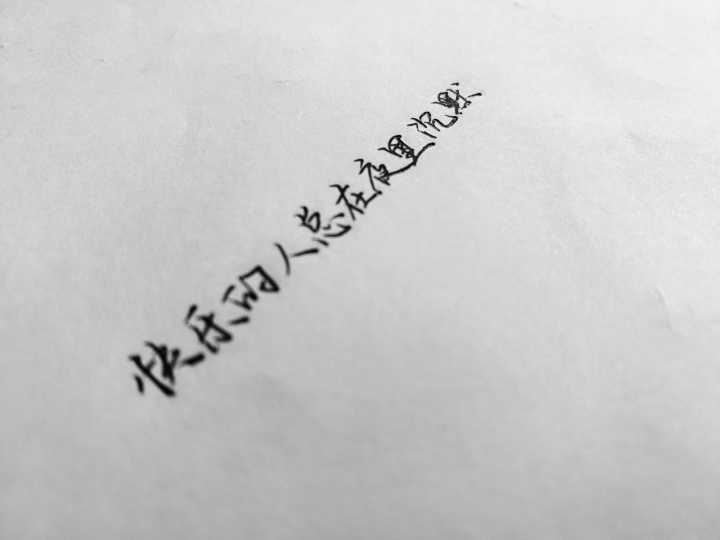 快乐的人总在夜里沉默